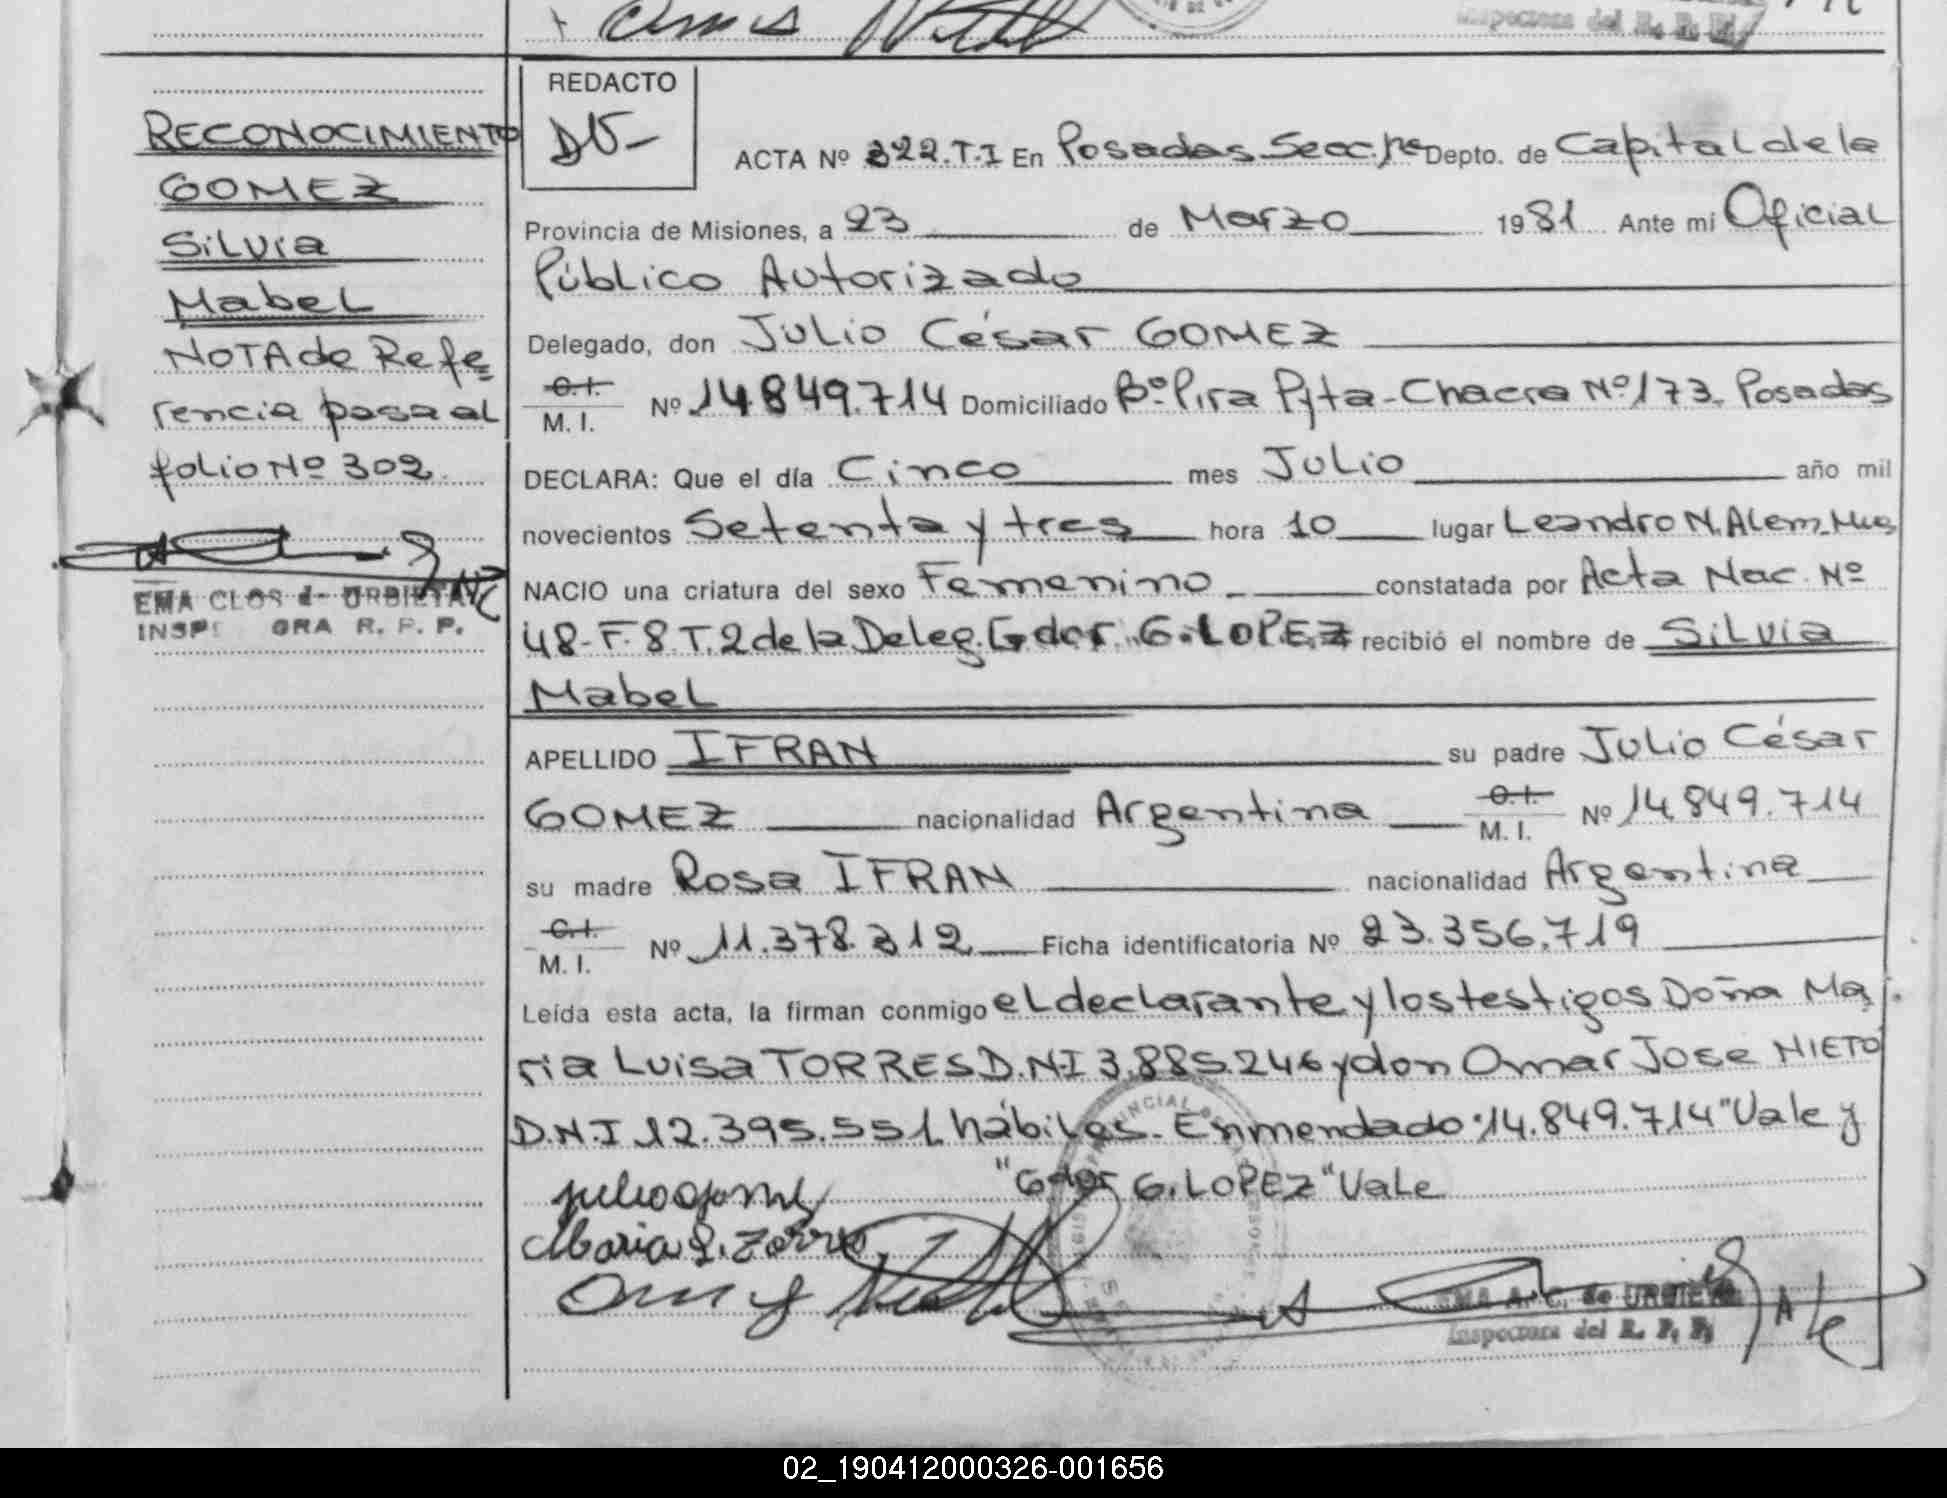 Inspectora del R. P. P.
RECONOCIMIENTO
GOMEZ
Silvia
Mabel
NOTA de Refe
rencia pasa al
folio Nº 302.
EMA CLOS de URBIETA
INSPE ORA R. P. P.
REDACTO
ACTA Nº 322.T.I En Posadas Secc. 1ra Depto. de Capital de la
Provincia de Misiones, a 23 de Marzo 1981 Ante mi Oficial
Público Autorizado
Delegado, don Julio César GOMEZ
C.I. M. I. Nº 14.849.714 Domiciliado Bº Pira Pyta - Chacra Nº 173. Posadas
DECLARA: Que el día Cinco mes Julio año mil
novecientos Setenta y tres hora 10 lugar Leandro N. Alem. Mnes
NACIO una criatura del sexo Femenino constatada por Acta Nac. Nº
48-F.8.T.2 de la Deleg. Gdor. G. LOPEZ recibió el nombre de Silvia
Mabel
APELLIDO IFRAN su padre Julio César
GOMEZ nacionalidad Argentina C.I. M. I. Nº 14.849.714
su madre Rosa IFRAN nacionalidad Argentina
C.I. M. I. Nº 11.378.312 Ficha identificatoria Nº 23.356.719
Leída esta acta, la firman conmigo el declarante y los testigos Doña Ma
ria Luisa TORRES D.N.I 3.885.246 y don Omar Jose NIETO
D.N.I 12.395.551 hábiles. Enmendado "14.849.714" Vale y
"Gdor G. LOPEZ" Vale
julio gomez
Maria L. Torres
EMA A. C. de URBIETA
Inspectora del R. P. P.
02_190412000326-001656